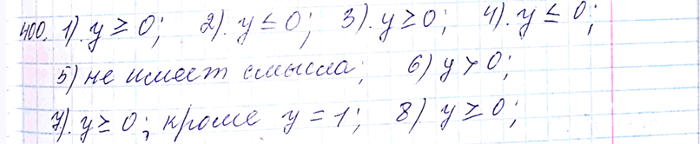 400. 1). y ≥ 0; 2). y ≤ 0; 3). y ≥ 0; 4). y ≤ 0;
5) не имеет смысла; 6) y > 0;
7). y ≥ 0; кроме y = 1; 8) y ≥ 0;